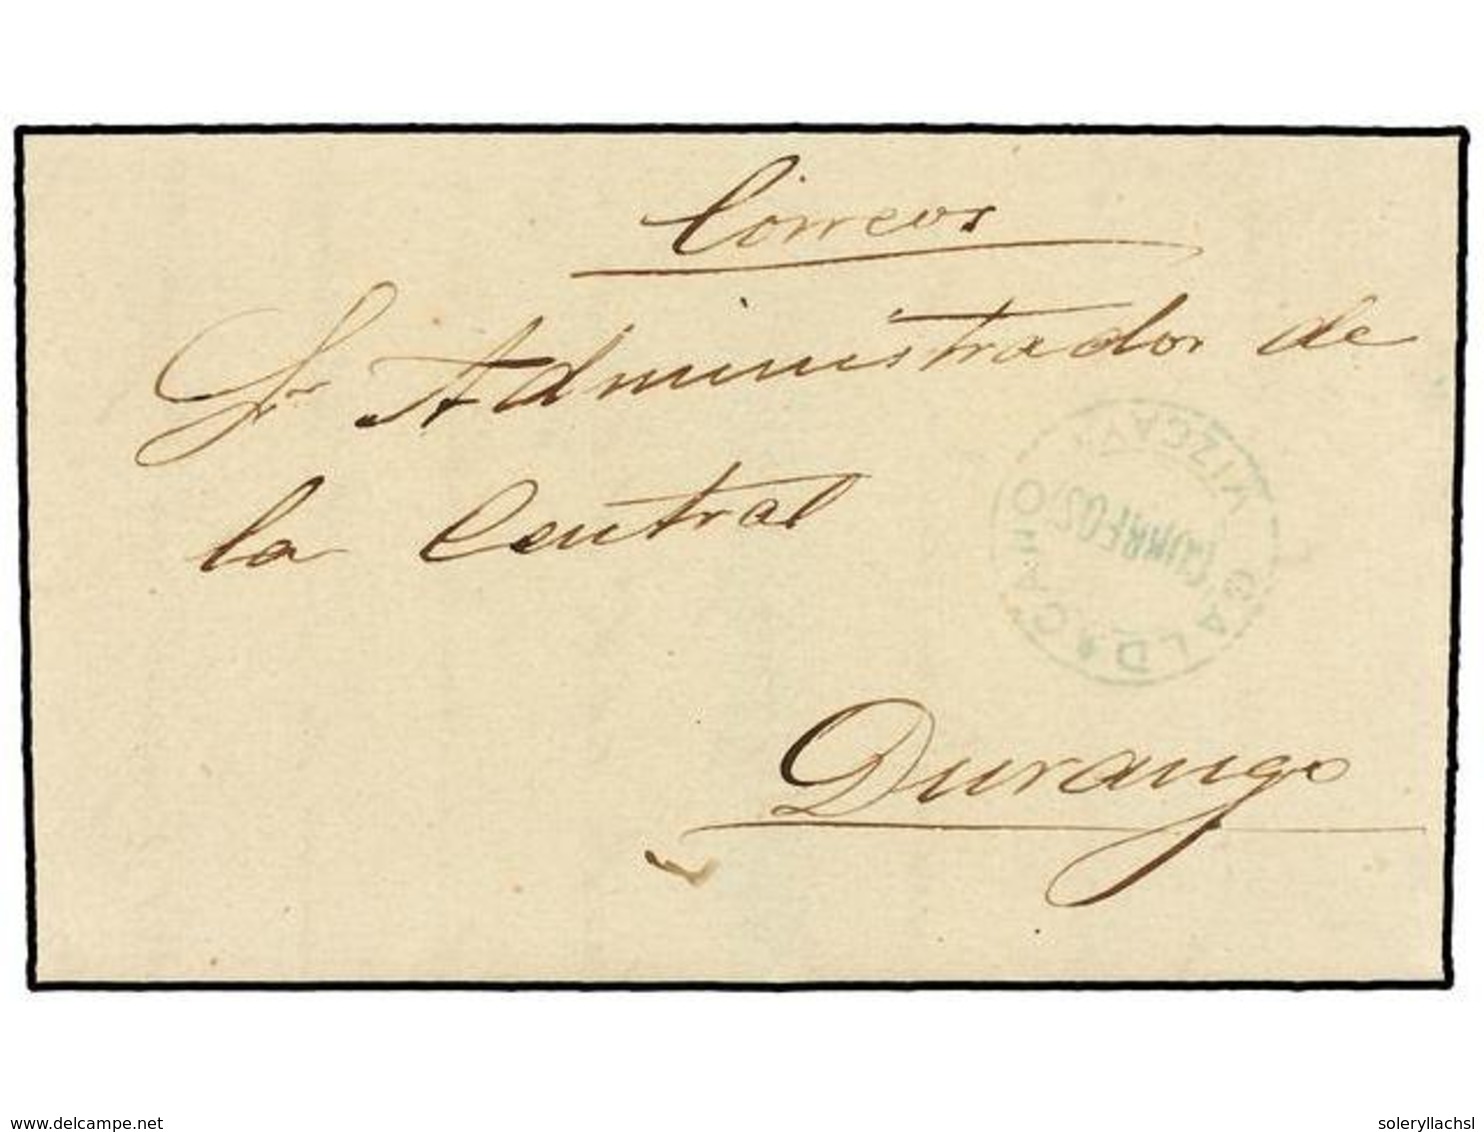 Correos
Sr Administrador de
la Central
GALDACANO VIZCAYA
CORREOS
Durango
delcampe.net
soleryllachsl